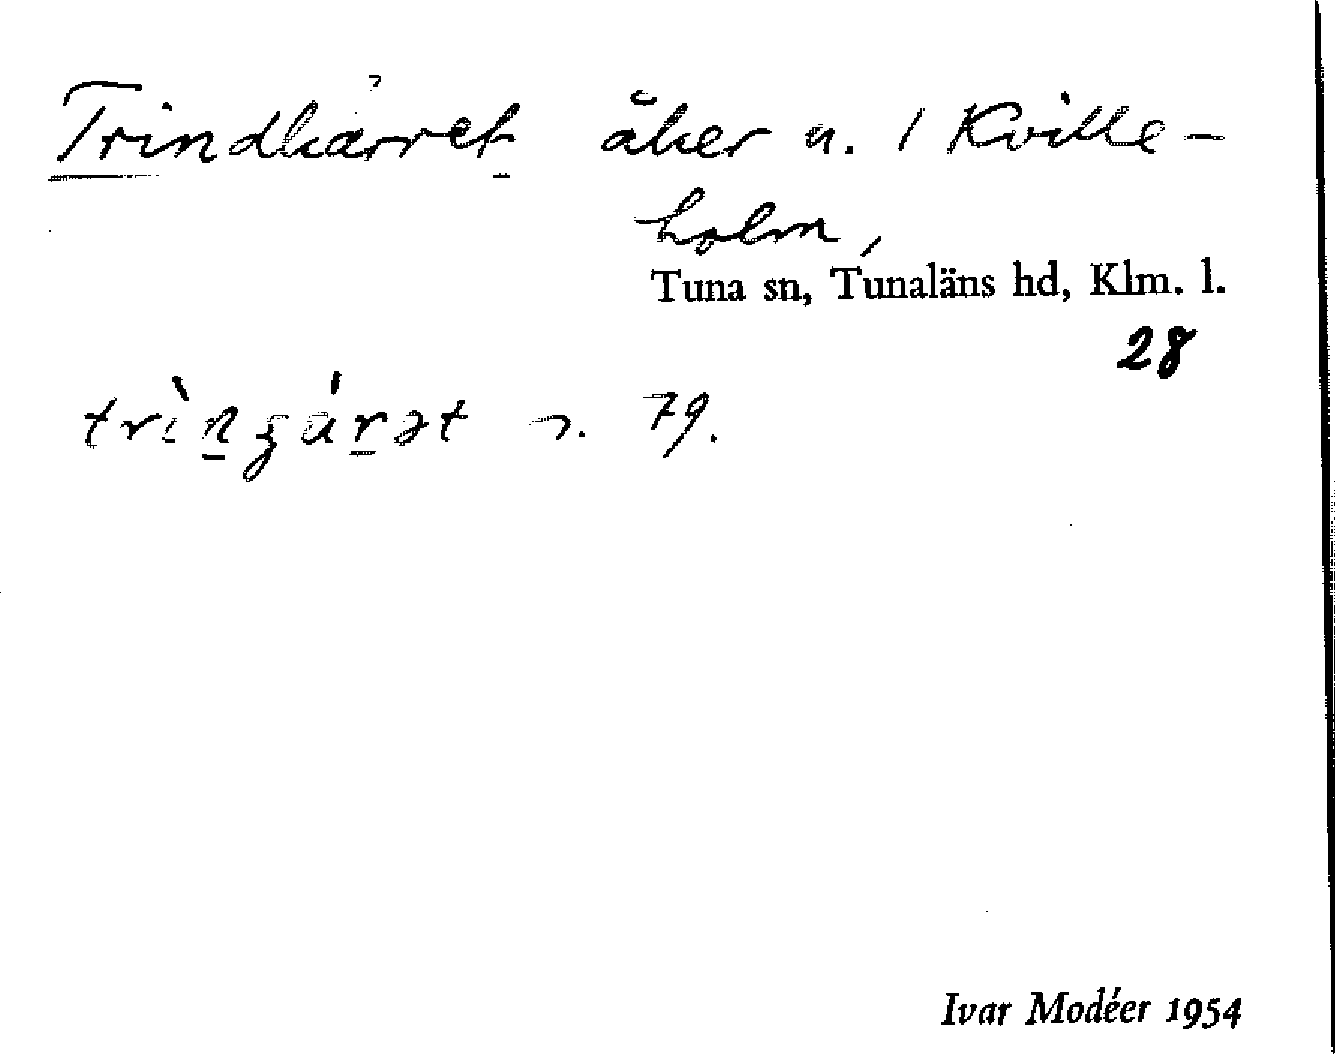 Trindkärret åker u. 1 Kville-
holm,
Tuna sn, Tunaläns hd, Klm. l.
28
n. 79.
Ivar Modéer 1954